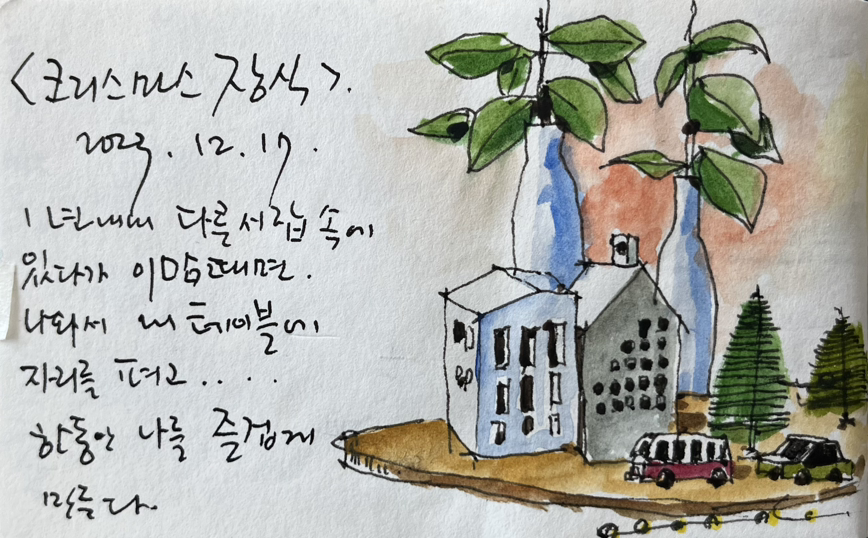 <크리스마스 장식>.
2023. 12. 17.
1년내내 다른 서랍 속에
있다가 이맘때면.
나와서 내 테이블에
자리를 펴고....
한동안 나를 즐겁게
만든다.